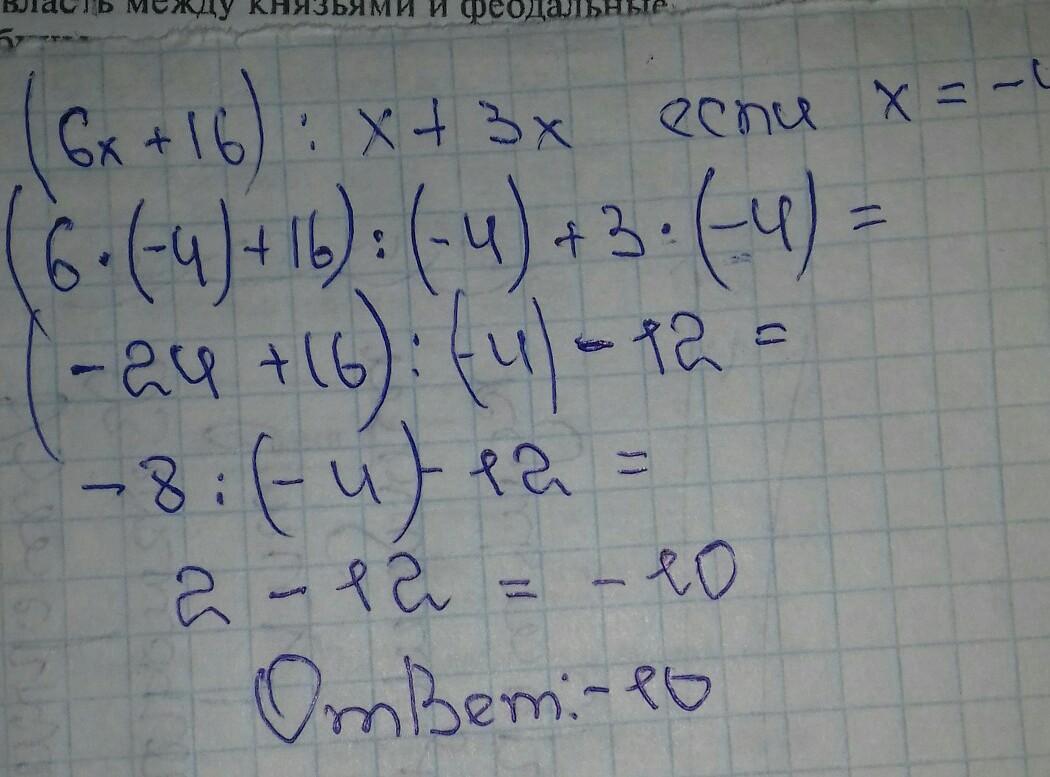 власть между князьями и феодальные
(6x+16) : x + 3x если x = -4
(6·(-4)+16):(-4)+3·(-4)=
(-24+16):(-4)-12=
-8:(-4)-12=
2-12=-10
Ответ:-10